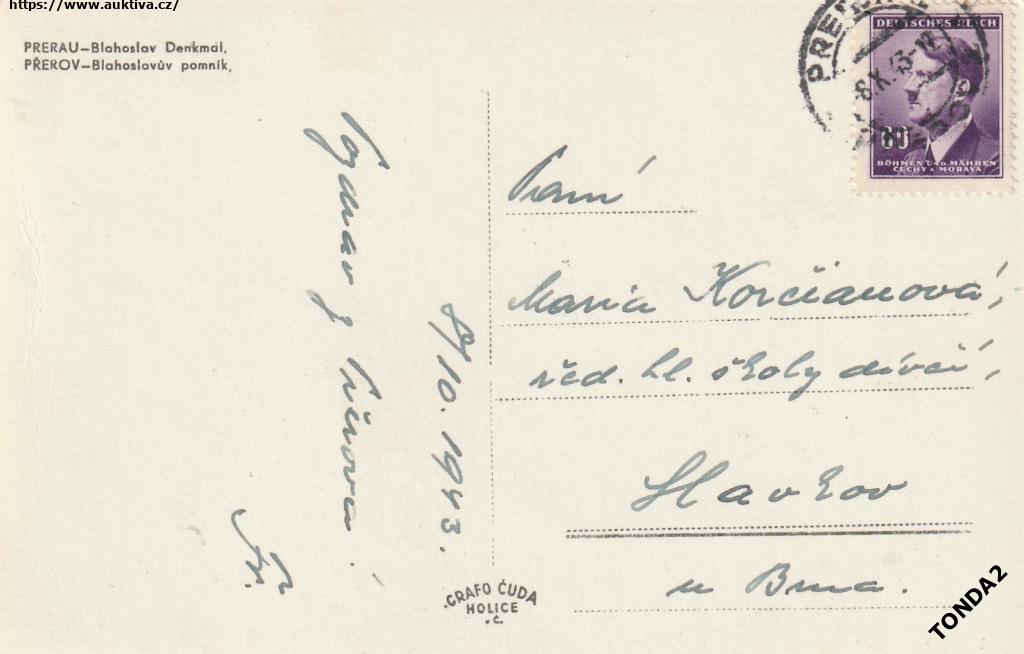 https://www.auktiva.cz/
PRERAU—Blahoslav Denkmal,
PŘEROV—Blahoslavův pomník,
Pozdrav z Přerova!
Fr.
8/10. 1943.
GRAFO ČUDA
HOLICE
č
DEUTSCHES REICH
60
BÖHMEN UND MÄHREN
ČECHY A MORAVA
Paní
Maria Korčianová,
řed. hl. školy dívčí,
Slavkov
u Brna.
TONDA2